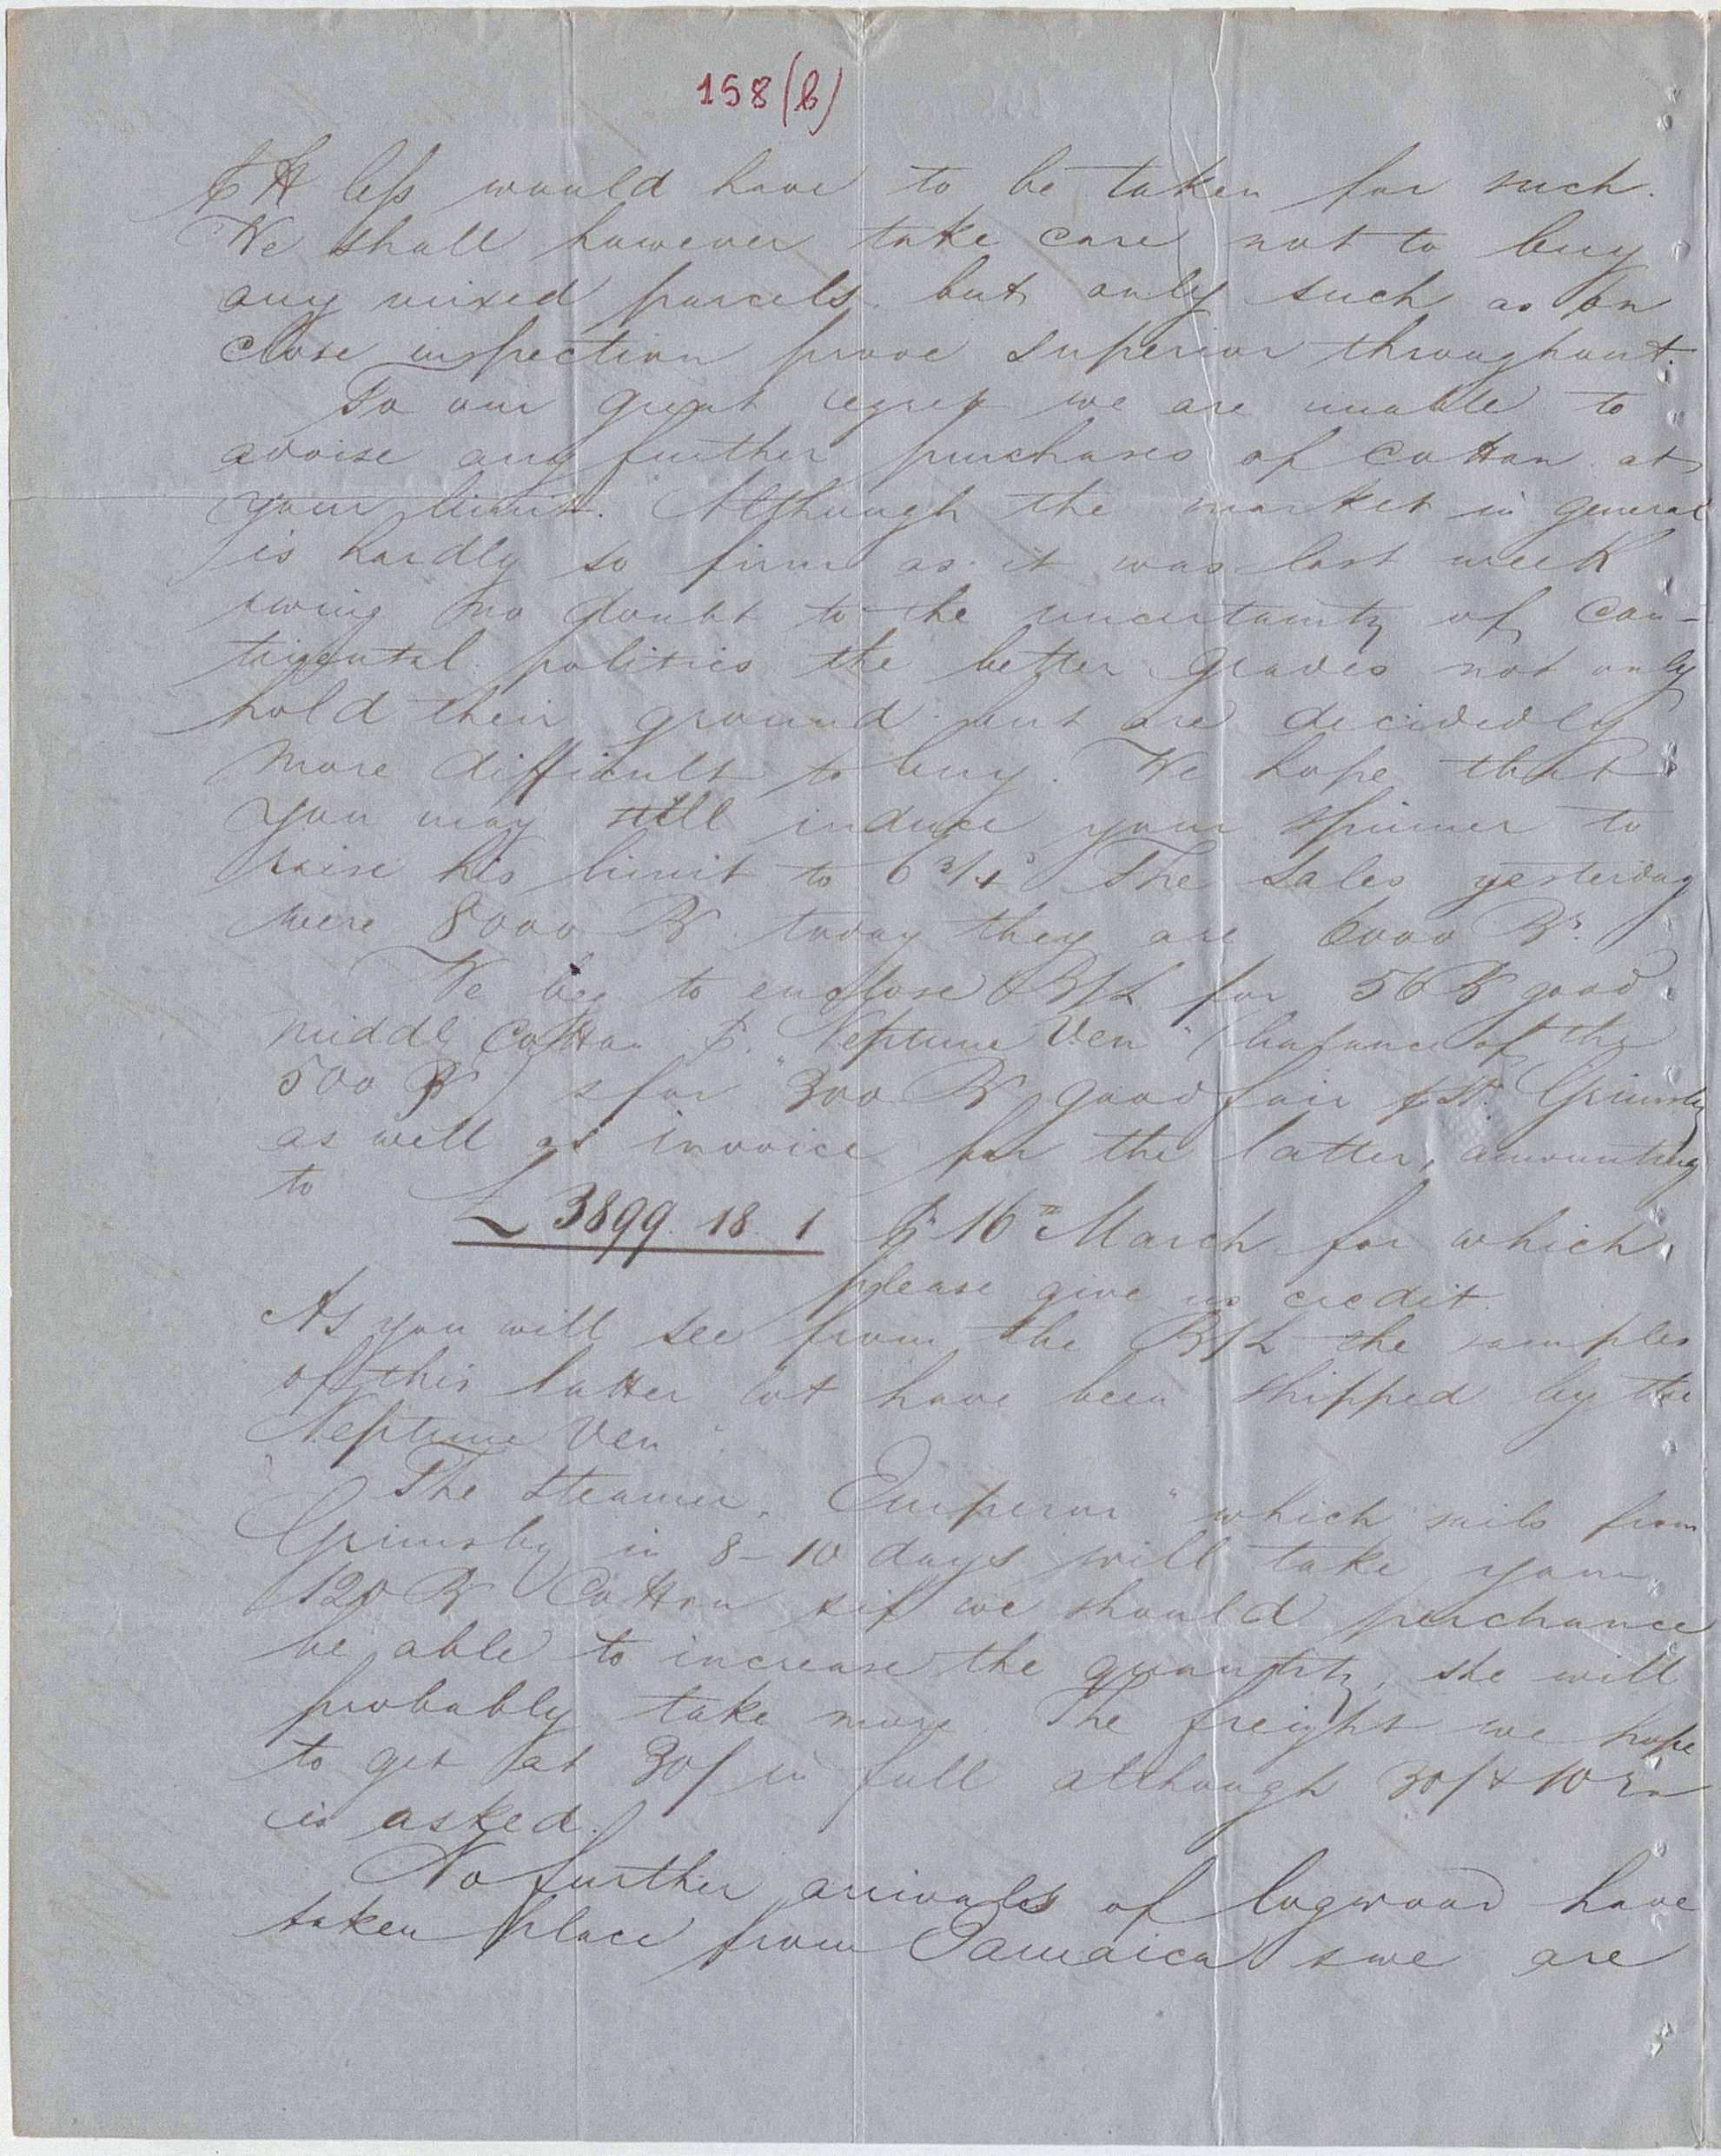 158(b)
℔ less would have to be taken for such.
We shall however take care not to buy
any mixed parcels but only such as on
close inspection prove superior throughout.
To our great regret we are unable to
advise any further purchases of Cotton at
your limit. Although the market in general
is hardly so firm as it was last week
owing no doubt to the uncertainty of Con-
tinental politics the better grades not only
hold their ground but are decidedly
more difficult to buy. We hope that
you may still induce your spinner to
raise his limit to 6 3/4 The Sales yesterday
were 8000 Bs today they are 6000 Bs.
We beg to enclose B/L for 56 Bs good
middlg Cotton p. "Neptune Ven" (balance of the
500 Bs) & for 300 Bs good fair pst. Grimsby
as well as invoice for the latter, amounting
to
£ 3899. 18. 1 pr 16th March for which
please give us credit.
As you will see from the B/L the samples
of this latter lot have been shipped by the
"Neptune Ven".
The steamer "Emperor" which sails from
Grimsby in 8-10 days will take your
120 Bs Cotton & if we should perchance
be able to increase the quantity, she will
probably take more The freight we hope
to get at 30/ in full although 30/ & 10
is asked.
No further arrivals of logwood have
taken place from Jamaica & we are